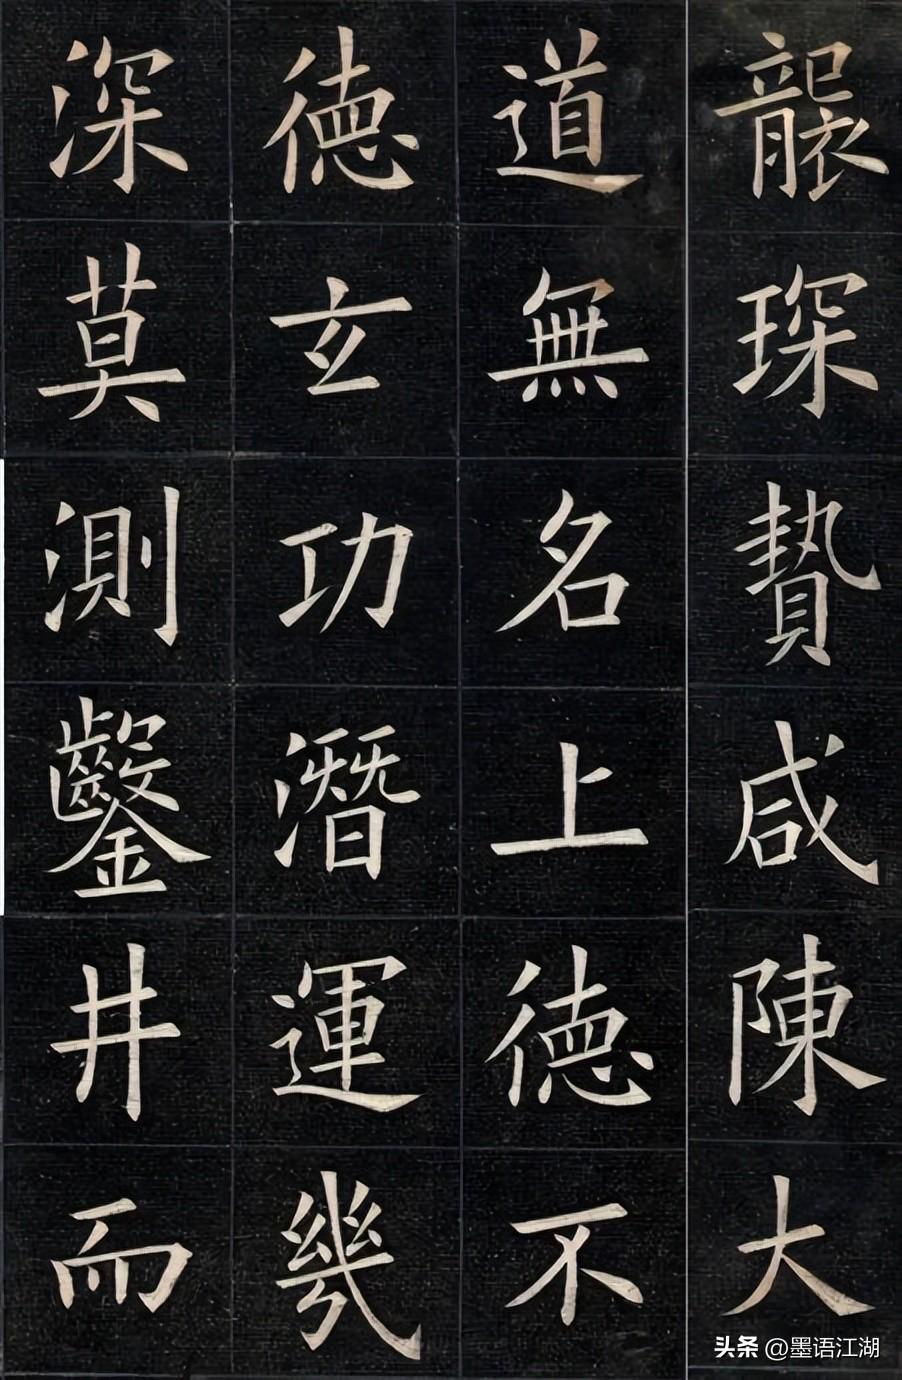 襲琛贄咸陳大
道無名上德不
德玄功潛運幾
深莫測鑿井而
头条 @墨语江湖